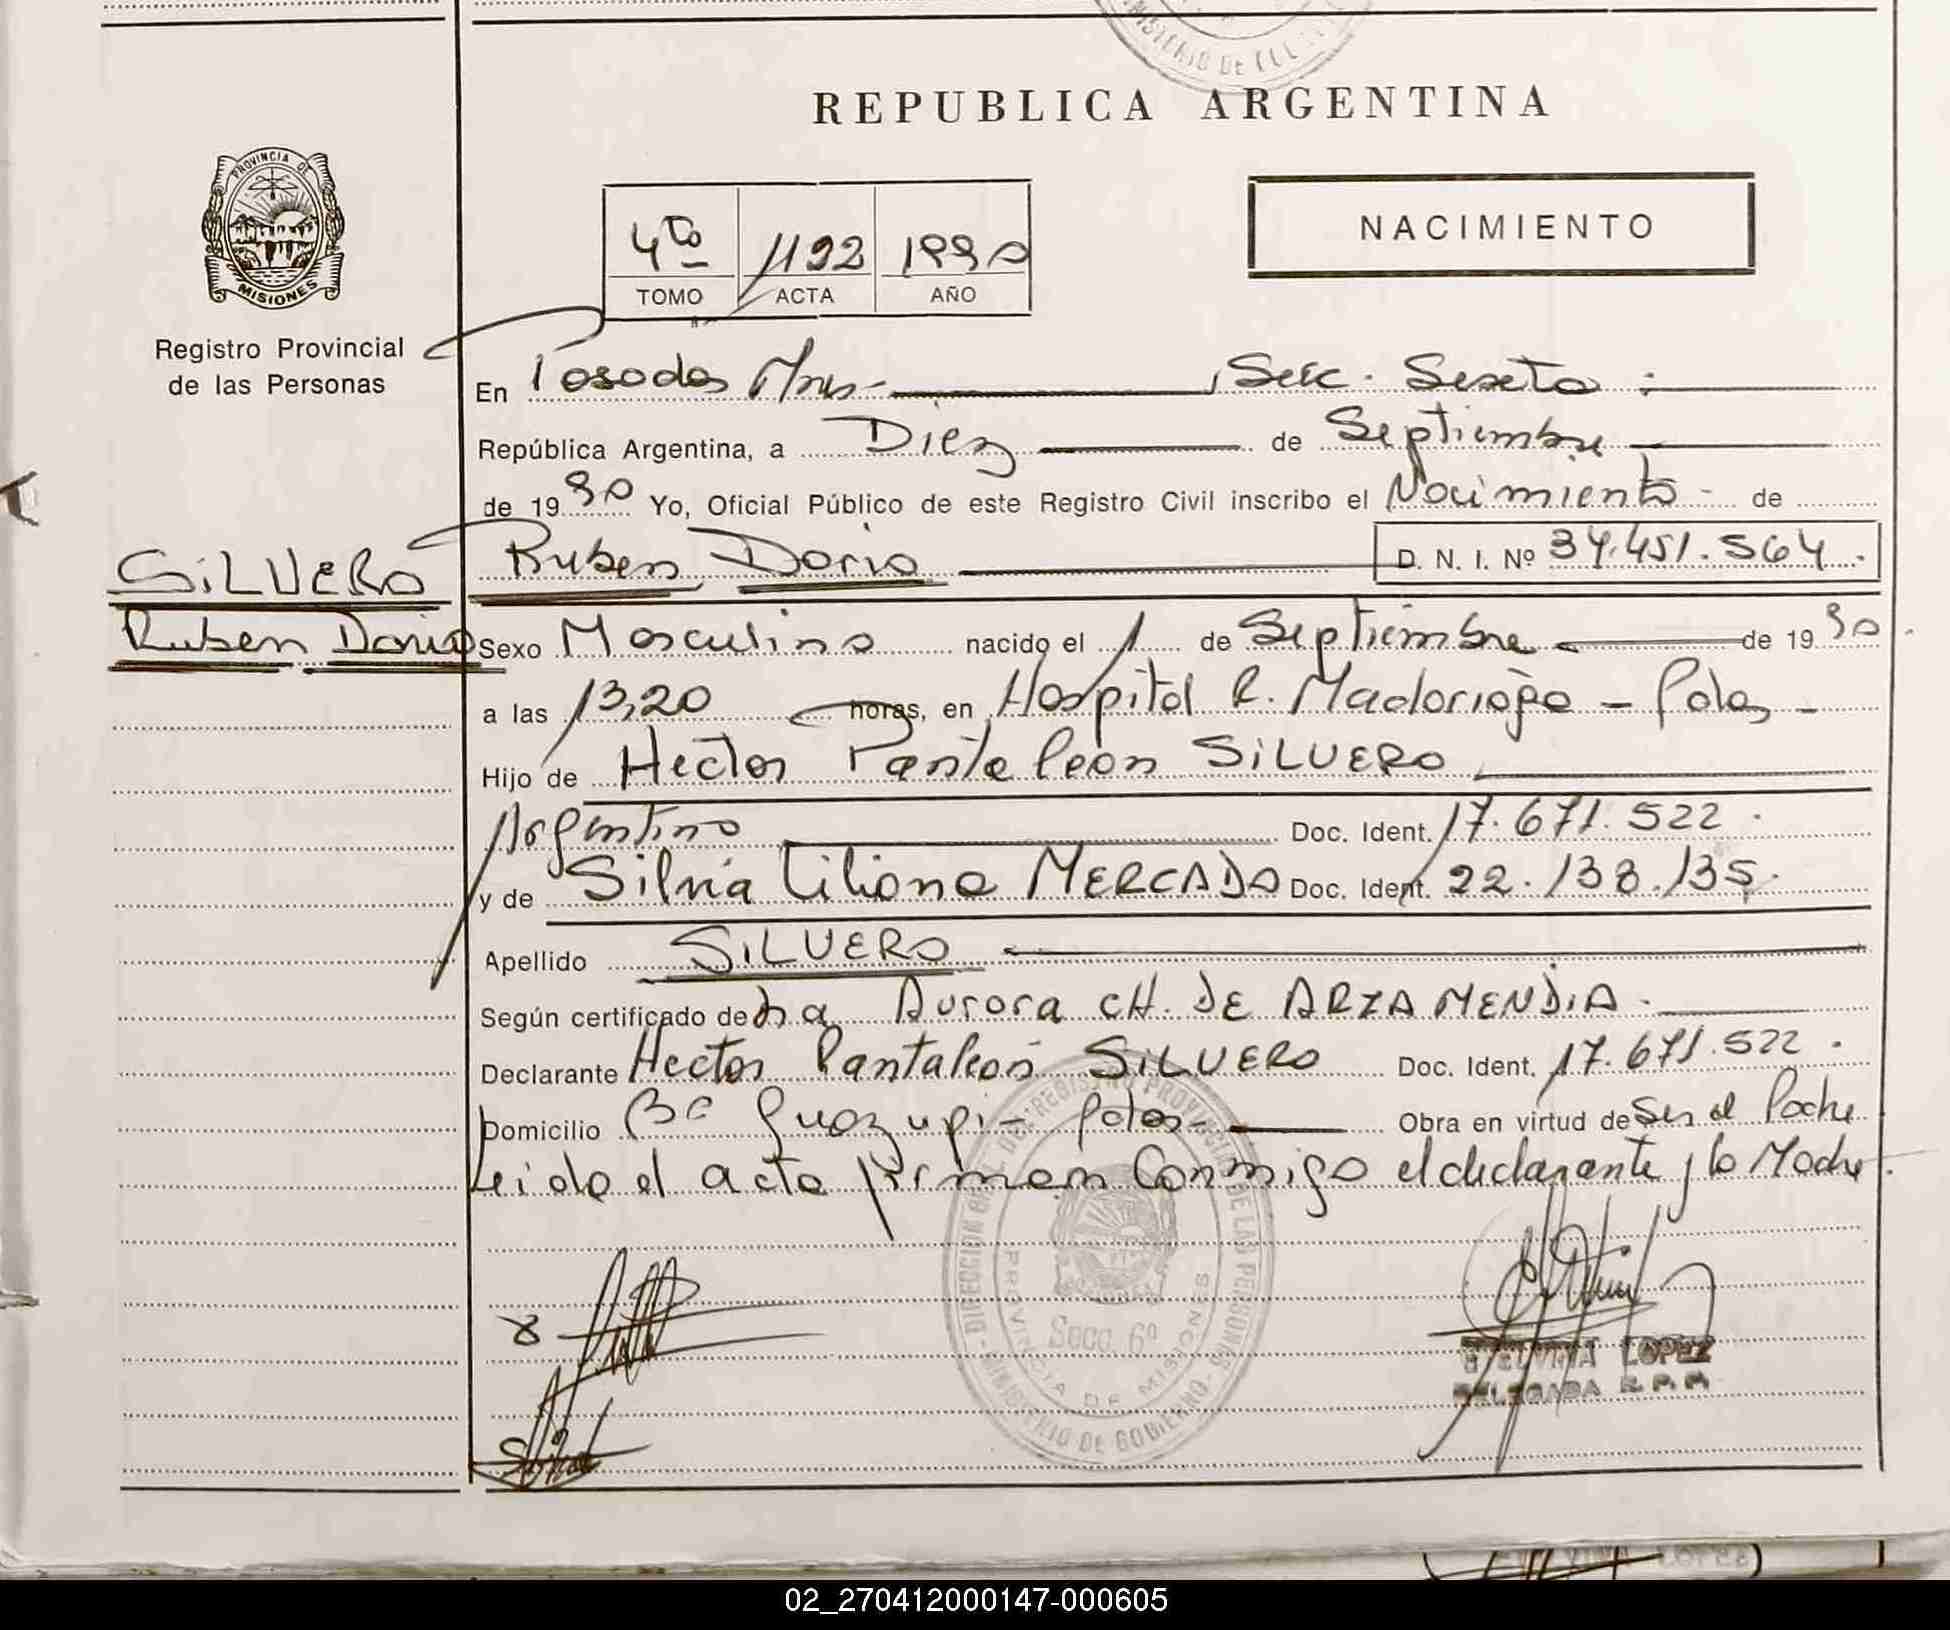 MINISTERIO DE
REPUBLICA ARGENTINA
PROVINCIA DE
MISIONES
Registro Provincial
de las Personas
4to 1192 1990
TOMO ACTA AÑO
NACIMIENTO
En Posadas Mnes- , Secc. Sexta
República Argentina, a Diez de Septiembre
de 1990 Yo, Oficial Público de este Registro Civil inscribo el Nacimiento - de
SILVERO
Ruben Dario D. N. I. Nº 34.451.564.
Ruben Dario
Sexo Masculino nacido el 1 de Septiembre de 1990.
a las 13,20 horas, en Hospital R. Madariaga - Pdas -
Hijo de Hector Pantaleon SILVERO
Argentino Doc. Ident. 17.671.522.
y de Silvia Liliana MERCADO Doc. Ident. 22.138.135.
Apellido SILVERO
Según certificado de Dra Aurora CH. DE ARZAMENDIA.
Declarante Hector Pantaleon SILVERO Doc. Ident. 17.671.522.
Domicilio Bº Guazupi- Pdas- Obra en virtud de Ser el Padre
Leida el acta firman conmigo el declarante y la Madre.
DIRECCION DEL REGISTRO PROVINCIAL DE LAS PERSONAS
MINISTERIO DE GOBIERNO
PROVINCIA DE MISIONES
Secc. 6º
ETELVINA LOPEZ
DELEGADA R.P.P.
02_270412000147-000605